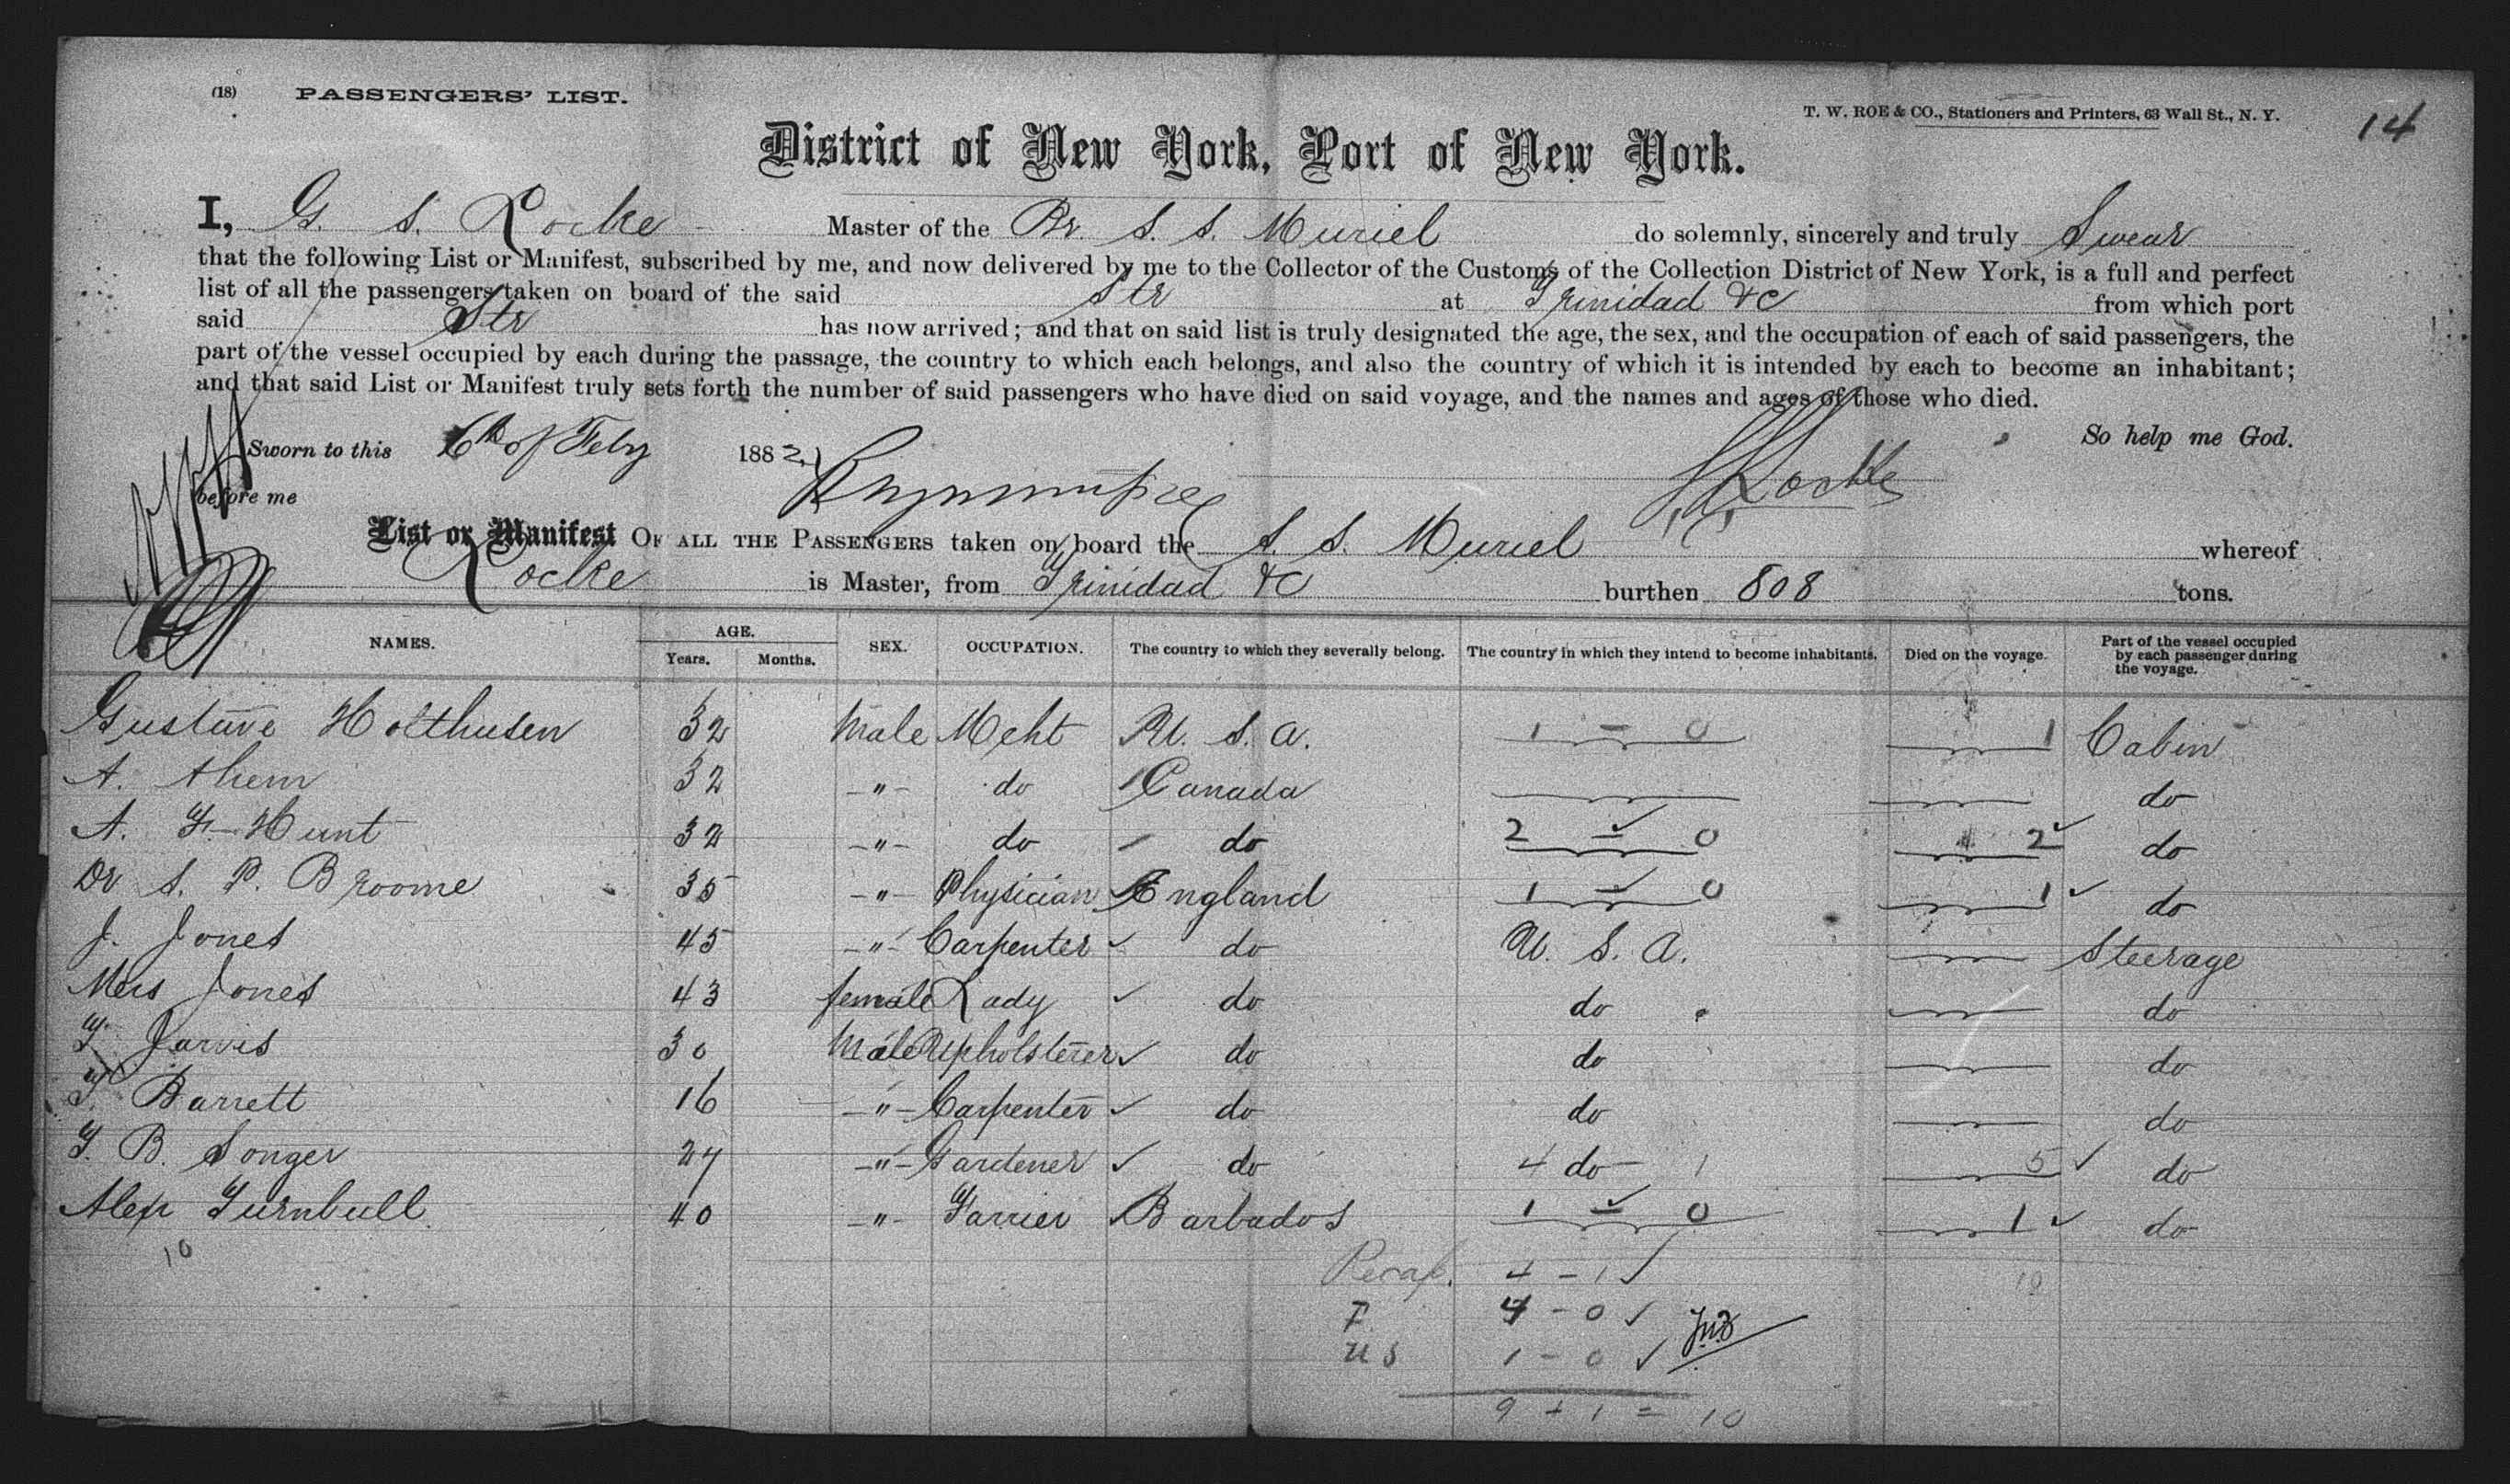 (18) PASSENGERS' LIST.
T. W. ROE & CO., Stationers and Printers, 63 Wall St., N. Y.
14
District of New York, Port of New York.
I, G. S. Locke Master of the Br. S. S. Muriel do solemnly, sincerely and truly Swear
that the following List or Manifest, subscribed by me, and now delivered by me to the Collector of the Customs of the Collection District of New York, is a full and perfect
list of all the passengers taken on board of the said Str at Trinidad &c from which port
said Str has now arrived; and that on said list is truly designated the age, the sex, and the occupation of each of said passengers, the
part of the vessel occupied by each during the passage, the country to which each belongs, and also the country of which it is intended by each to become an inhabitant;
and that said List or Manifest truly sets forth the number of said passengers who have died on said voyage, and the names and ages of those who died.
Sworn to this 6th of Feby 1882, So help me God.
before me Locke
List or Manifest OF ALL THE PASSENGERS taken on board the S. S. Muriel whereof
Locke is Master, from Trinidad &c burthen 808 tons.
NAMES. AGE. Years. Months. SEX. OCCUPATION. The country to which they severally belong. The country in which they intend to become inhabitants. Died on the voyage. Part of the vessel occupied by each passenger during the voyage.
Gustave Holthusen 32 Male Mcht U. S. A. 1 - 0 1 Cabin
A. Ahern 32 -"- do Canada do
A. F. Hunt 32 -"- do do 2 - 0 2 do
Dr S. P. Broome 35 -"- Physician England 1 - 0 1 do
J. Jones 45 -"- Carpenter do U. S. A. Steerage
Mrs Jones 43 female Lady do do do
T. Jarvis 30 Male Upholsterer do do do
T. Barrett 16 -"- Carpenter do do do
T. B. Songer 27 -"- Gardener do 4 do 1 5 do
Alex Turnbull 40 -"- Farrier Barbados 1 - 0 1 do
10
Recap. 4 - 1 10
T. 4 - 0
U S 1 - 0
9 + 1 = 10